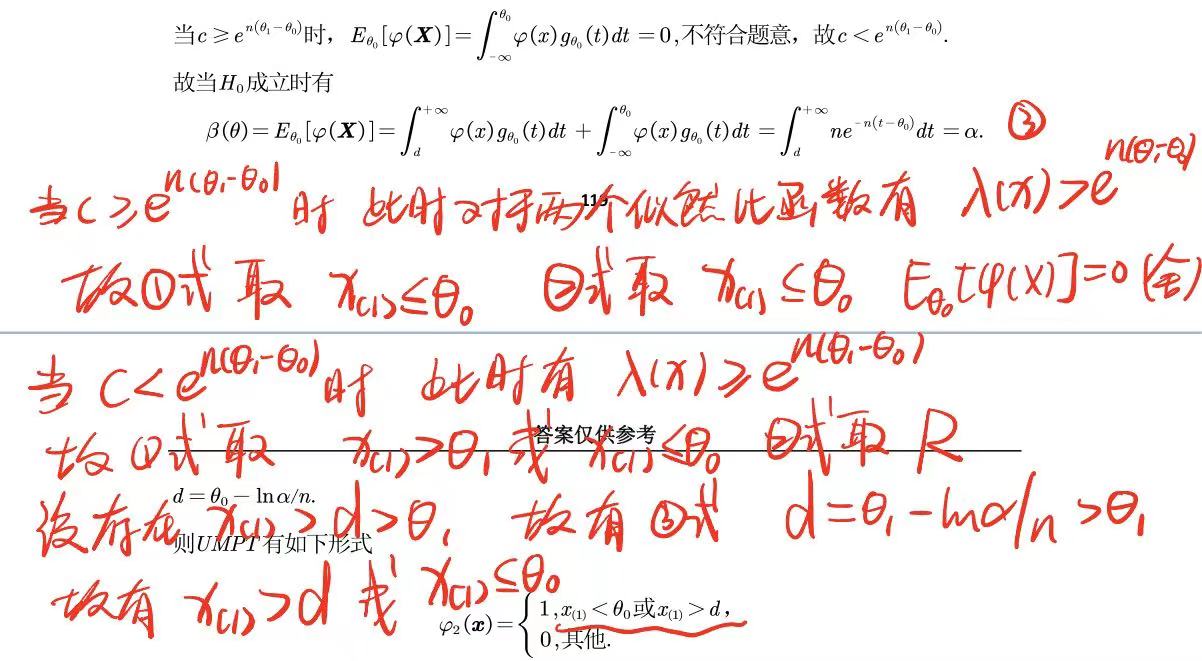 当c≥e^{n(θ₁-θ₀)}时，E_{θ₀}[φ(X)]=∫_{-∞}^{θ₀}φ(x)g_{θ₀}(t)dt=0,不符合题意，故c<e^{n(θ₁-θ₀)}.
故当H₀成立时有
β(θ)=E_{θ₀}[φ(X)]=∫_{d}^{+∞}φ(x)g_{θ₀}(t)dt+∫_{-∞}^{θ₀}φ(x)g_{θ₀}(t)dt=∫_{d}^{+∞}ne^{-n(t-θ₀)}dt=α. ③
当C≥e^{n(θ₁-θ₀)}时 此时对于两个似然比函数有 λ(x)>e^{n(θ₁-θ₀)}
故①式取 x₍₁₎≤θ₀ ②式取 x₍₁₎≤θ₀ E_{θ₀}[φ(X)]=0(舍)
当C<e^{n(θ₁-θ₀)}时 此时有 λ(x)≥e^{n(θ₁-θ₀)}
答案仅供参考
故①式取 x₍₁₎>θ₁或x₍₁₎≤θ₀ ②式取R
d=θ₀-lnα/n.
设存在x₍₁₎>d>θ₁ 故有③式 d=θ₁-lnα/n>θ₁
则UMPT有如下形式
故有x₍₁₎>d或x₍₁₎≤θ₀
φ₂(x)={1,x₍₁₎<θ₀或x₍₁₎>d,
0,其他.